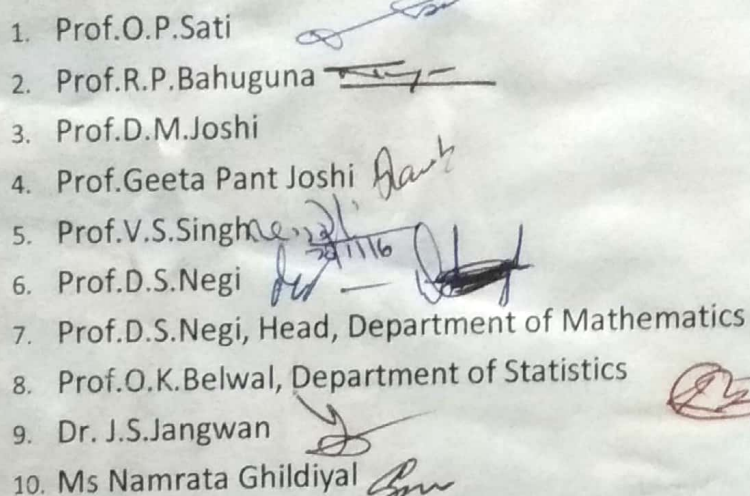 1. Prof.O.P.Sati
2. Prof.R.P.Bahuguna
3. Prof.D.M.Joshi
4. Prof.Geeta Pant Joshi
5. Prof.V.S.Singh
6. Prof.D.S.Negi
7. Prof.D.S.Negi, Head, Department of Mathematics
8. Prof.O.K.Belwal, Department of Statistics
9. Dr. J.S.Jangwan
10. Ms Namrata Ghildiyal